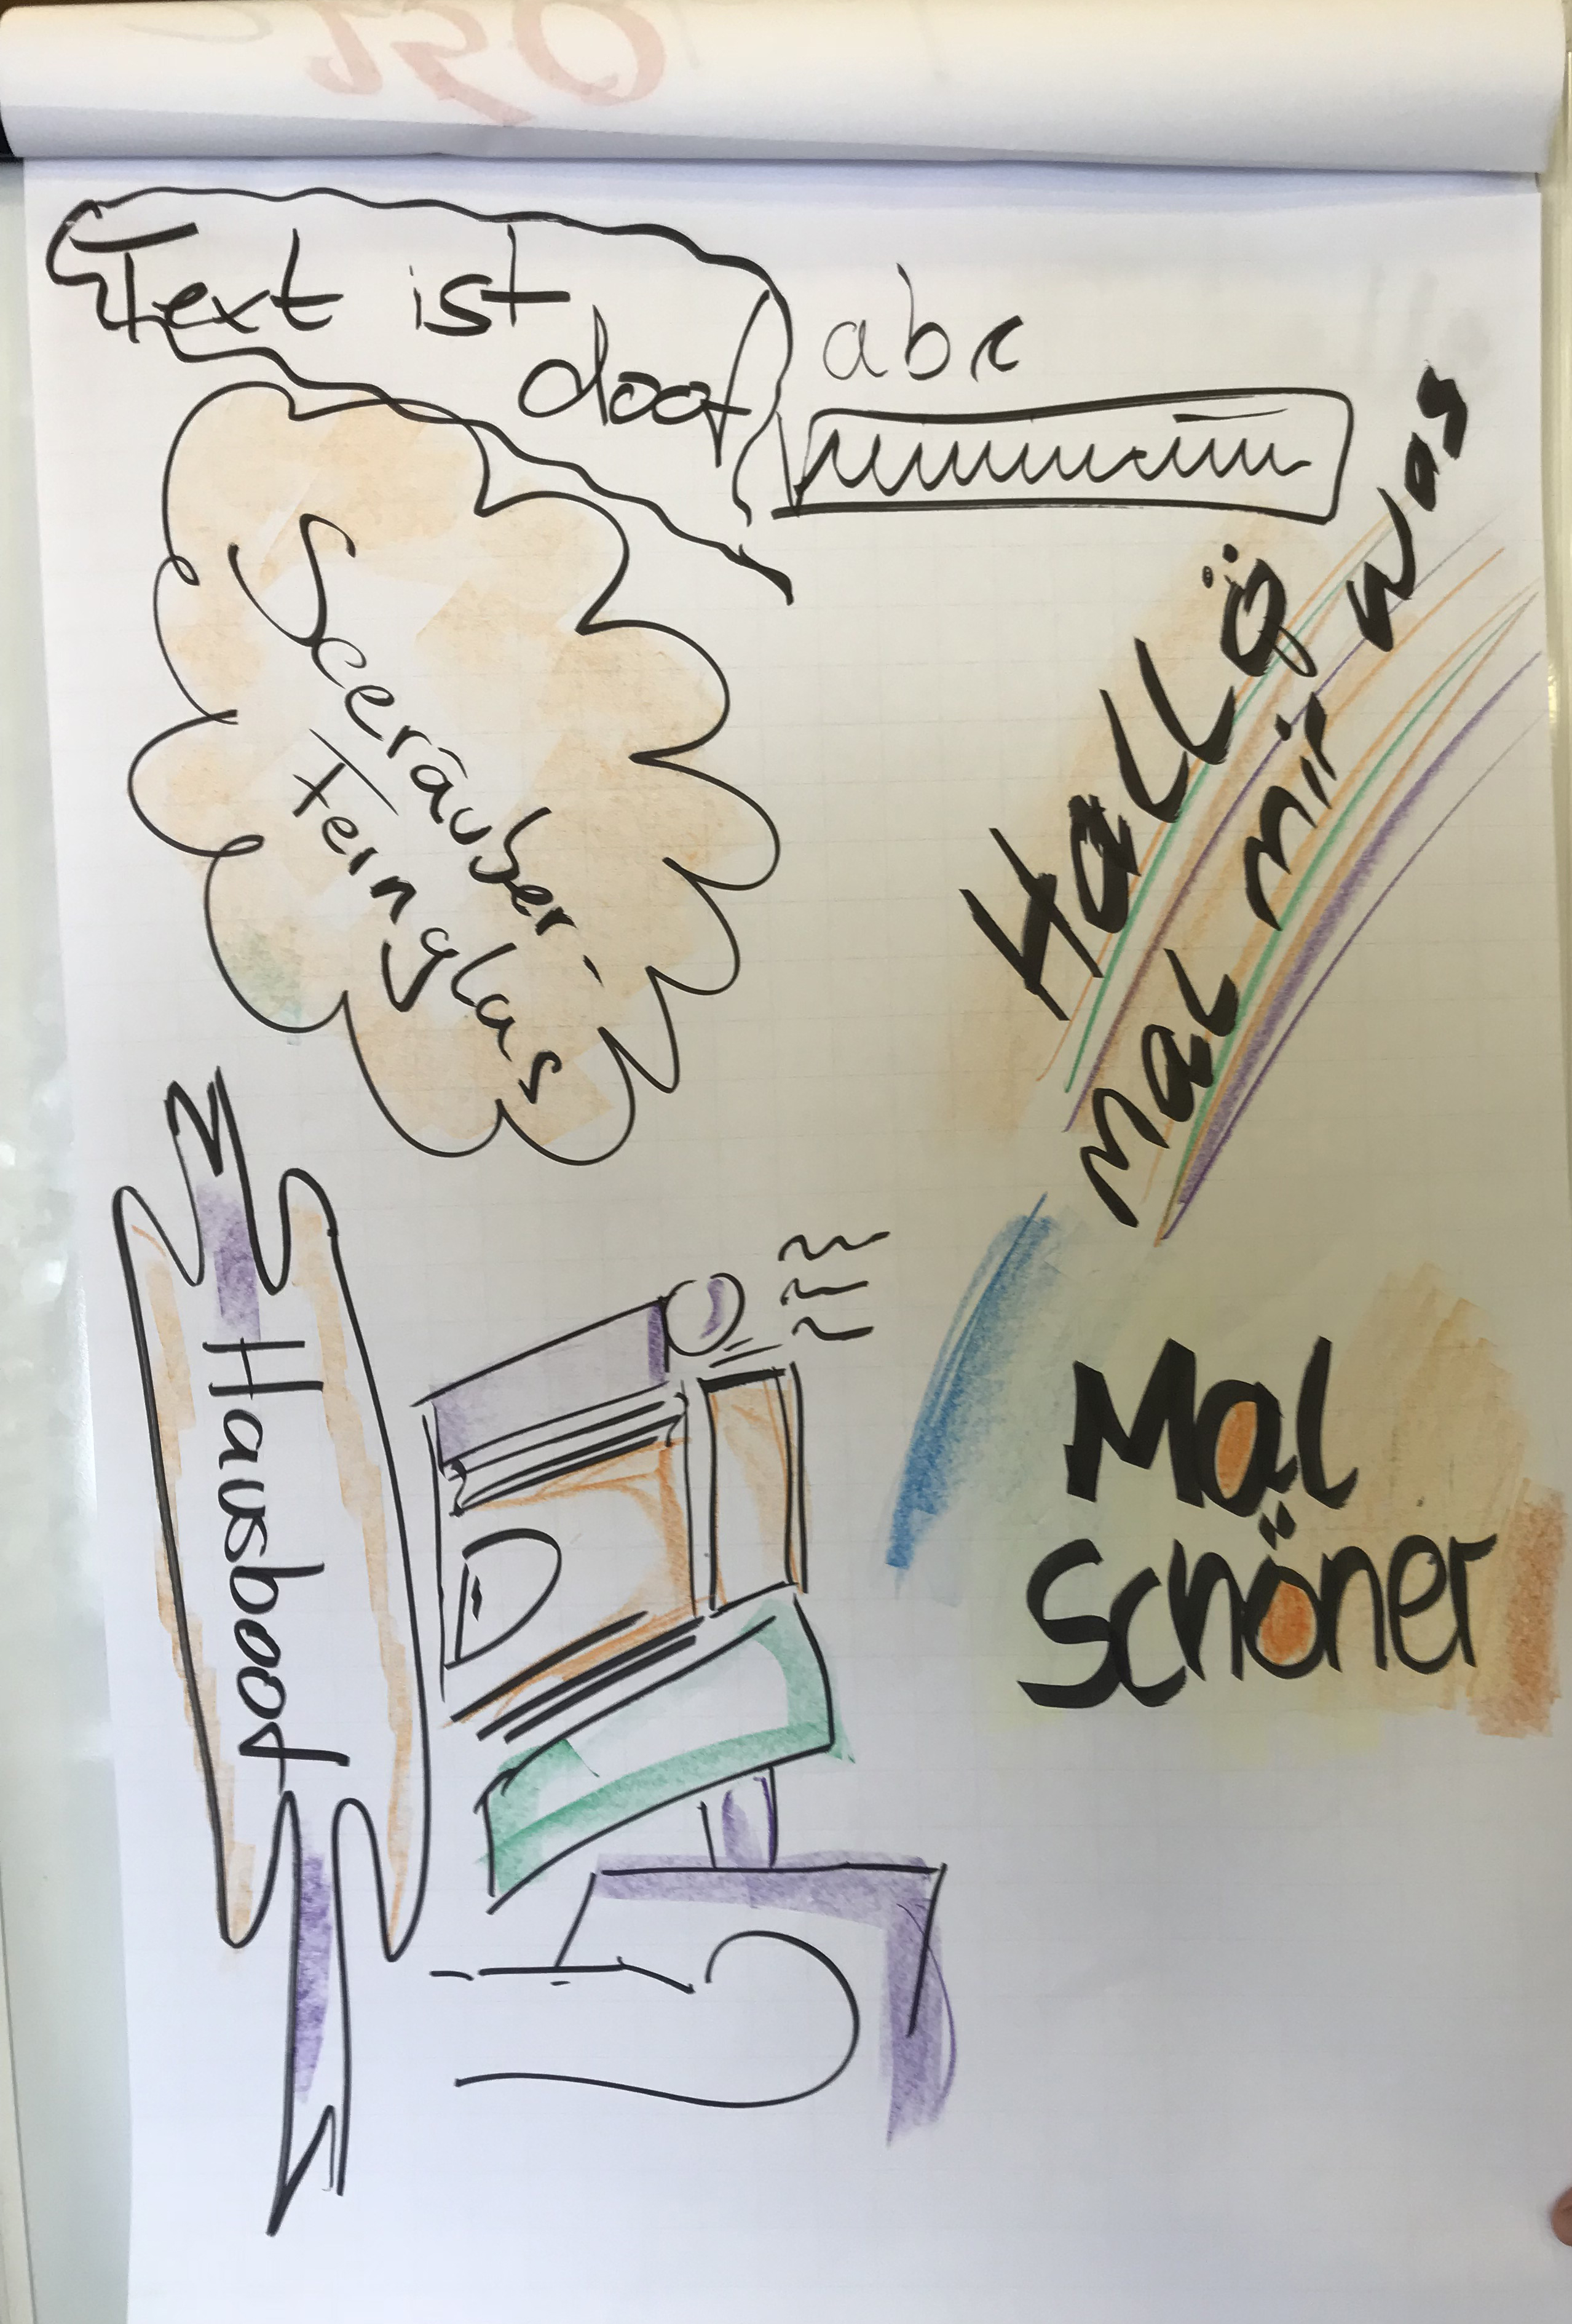 Text ist
doof
abc
Seeräuber-
Fernglas
Hallö
mal mir was
Hausboot
Mal
Schöner